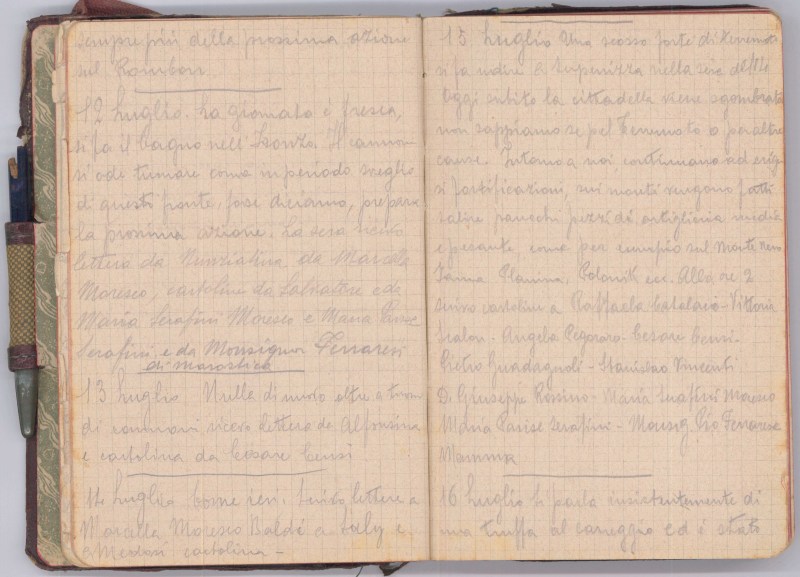 sempre più della prossima azione
sul Rombon.
12 Luglio. La giornata è fresca,
si fa il bagno nell'Isonzo. Il cannone
si ode tuonare come in periodo sveglio
di questi fronte, forse diciamo, prepara
la prossima azione. La sera ricevo
lettera da Nunziatina da Marcella
Moresco, cartoline da Salvatore e da
Maria Serafini Moresco e Maria Parise
Serafini, e da Monsignor Ferraresi
di Marostica
13 Luglio Nulla di nuovo oltre a tuoni
di cannoni, ricevo lettera da Alfonsina
e cartolina da Cesare Censi.
14 Luglio Come ieri. Scrivo lettere a
Marcella Moresco Baldé a Lely e
cartolina -
15 Luglio Una scossa forte di terremoto
si fa udire a nella sera del 14
Oggi subito la cittadella viene sgombrata
non sappiamo se pel terremoto o per altre
cause. Intorno a noi, continuano ad
si fortificazioni, sui monti vengono fatti
salire parecchi pezzi di artiglieria media
e pesante come per esempio sul Monte Nero
Planina, Polonik ecc. Alle ore 2
scrivo cartoline a Raffaela Catalano - Vittoria
Scalon - Angela Pegoraro - Cesare Censi -
Pietro Guadagnoli - Stanislao Vincenti
Di Giuseppe Rossino - Maria Serafini Moresco
Maria Parise Serafini - Monsig. Pio Ferrarese
Mamma
16 Luglio Si parla insistentemente di
una truffa al carreggio ed è stato